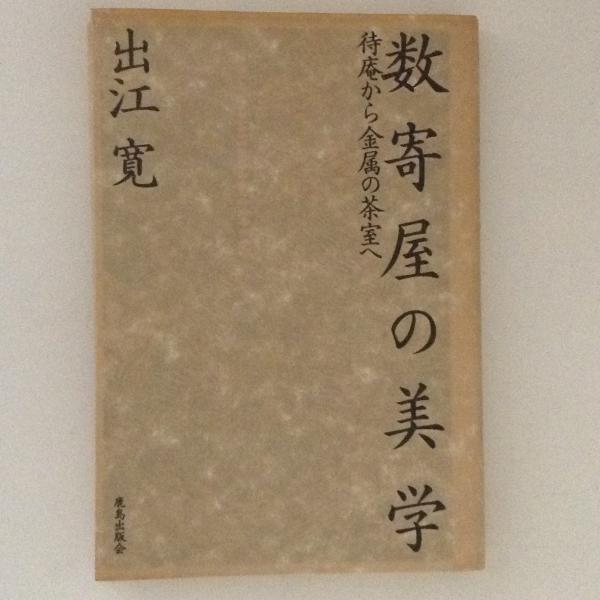 数寄屋の美学
待庵から金属の茶室へ
出江寛
鹿島出版会